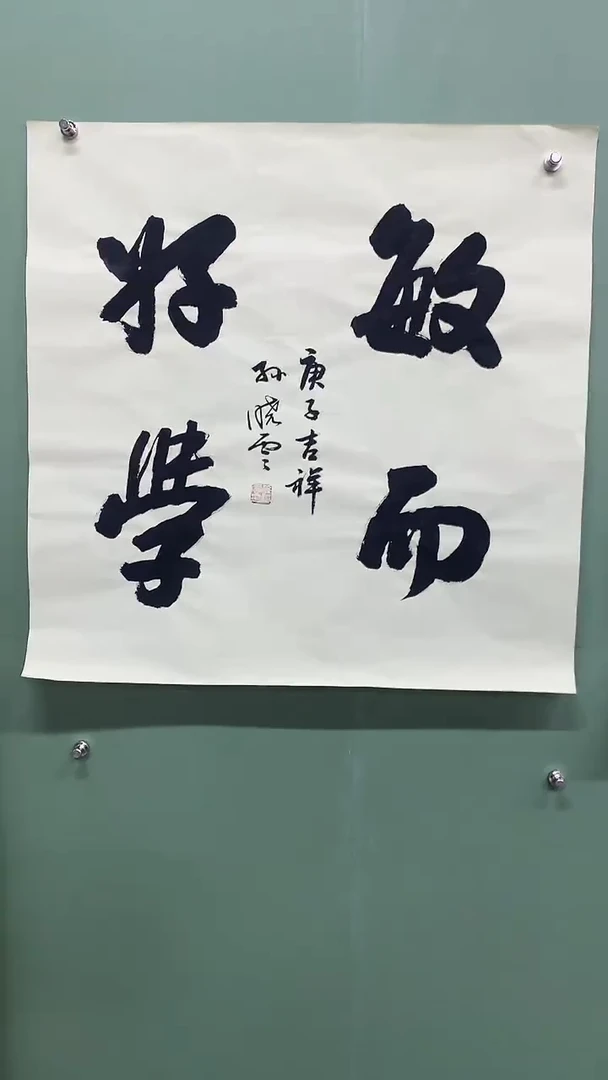 敏而
好學
庚子吉祥
孙晓云